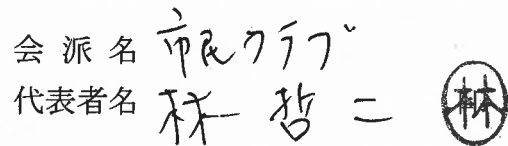 会派名 市民クラブ
代表者名 林 哲二 林